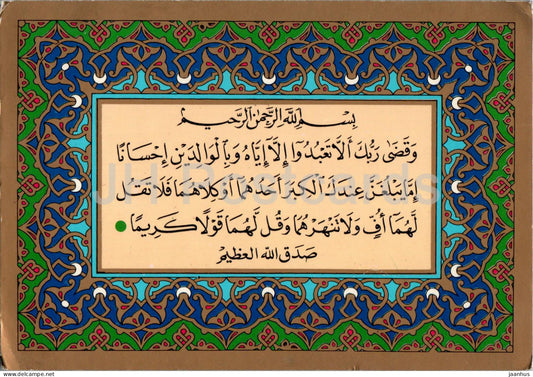 بِسْمِ اللَّهِ الرَّحْمَٰنِ الرَّحِيمِ
وَقَضَىٰ رَبُّكَ أَلَّا تَعْبُدُوا إِلَّا إِيَّاهُ وَبِالْوَالِدَيْنِ إِحْسَانًا
إِمَّا يَبْلُغَنَّ عِندَكَ الْكِبَرَ أَحَدُهُمَا أَوْ كِلَاهُمَا فَلَا تَقُل
لَّهُمَا أُفٍّ وَلَا تَنْهَرْهُمَا وَقُل لَّهُمَا قَوْلًا كَرِيمًا
صدق الله العظيم
JH Postcards
All-numis.com
jaanhus